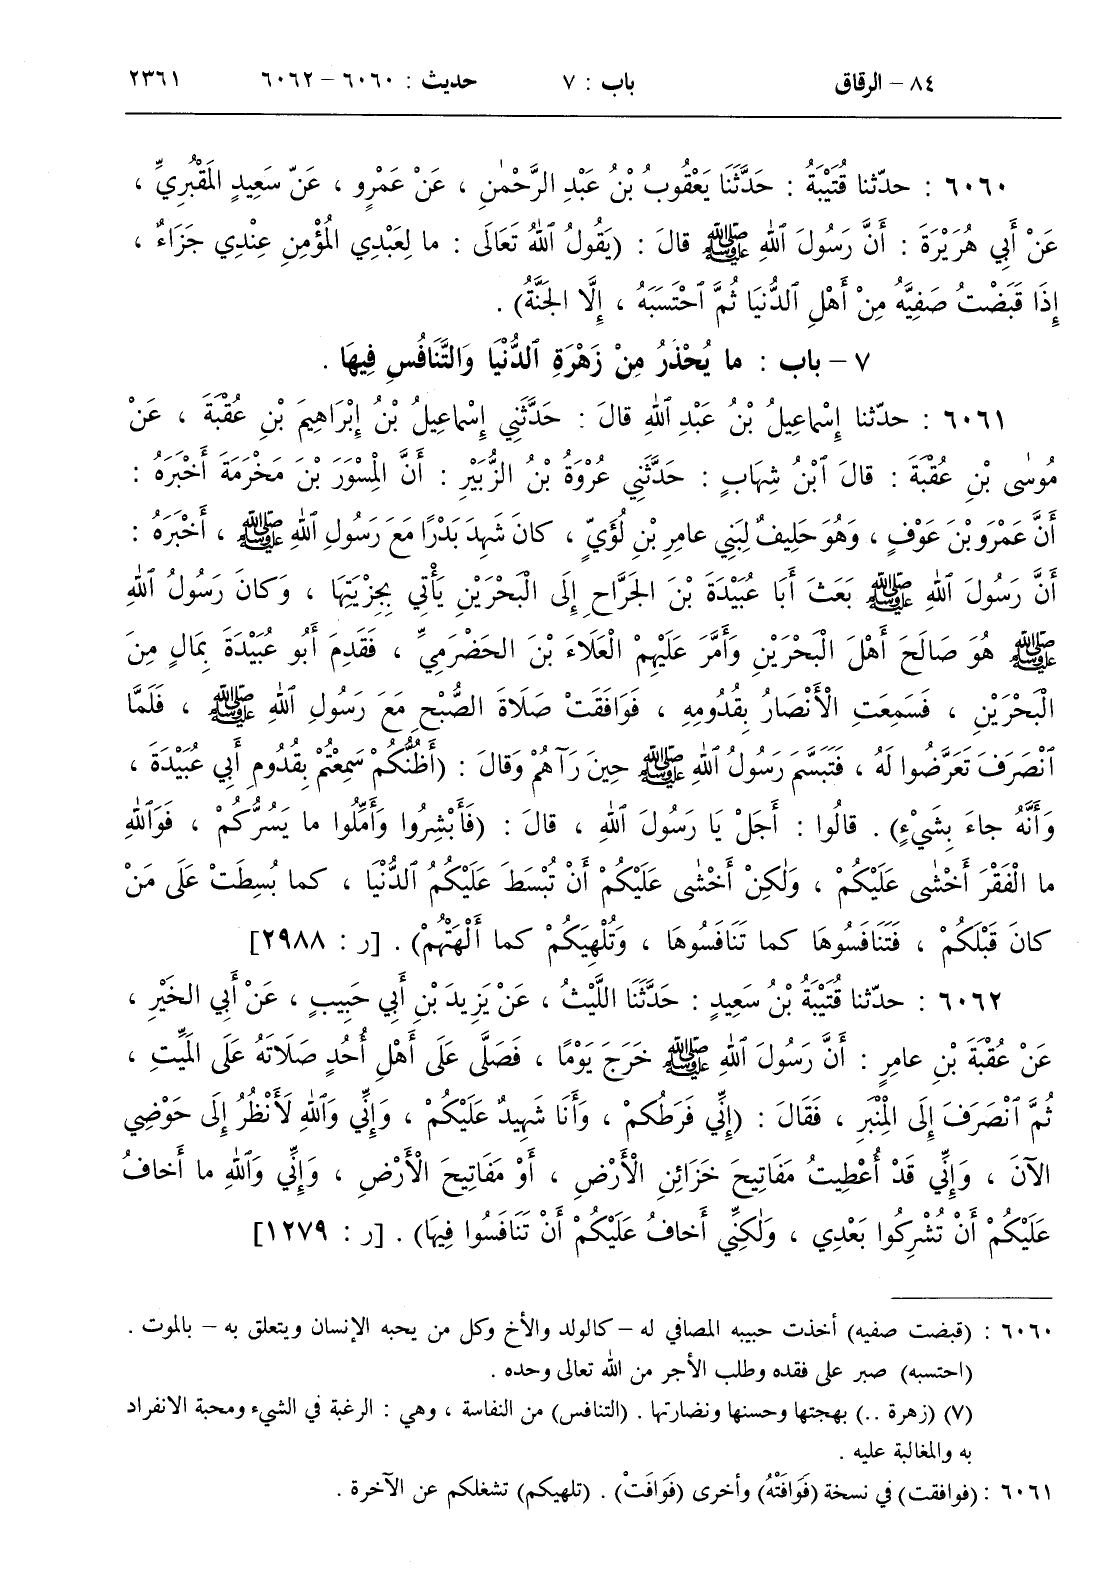 ٨٤ – الرقاق باب : ٧ حديث : ٦٠٦٠ – ٦٠٦٢ ٢٣٦١
٦٠٦٠ : حدّثنا قُتَيْبَةُ : حَدَّثَنَا يَعْقُوبُ بْنُ عَبْدِ الرَّحْمٰنِ ، عَنْ عَمْرٍو ، عَنْ سَعِيدٍ المَقْبُرِيِّ ،
عَنْ أَبِي هُرَيْرَةَ : أَنَّ رَسُولَ ٱللهِ ﷺ قالَ : (يَقُولُ ٱللهُ تَعَالَى : ما لِعَبْدِي المُؤْمِنِ عِنْدِي جَزَاءٌ ،
إِذَا قَبَضْتُ صَفِيَّهُ مِنْ أَهْلِ ٱلدُّنْيَا ثُمَّ ٱحْتَسَبَهُ ، إِلَّا الجَنَّةُ) .
٧ – باب : ما يُحْذَرُ مِنْ زَهْرَةِ ٱلدُّنْيَا وَالتَّنَافُسِ فِيهَا .
٦٠٦١ : حدّثنا إِسْماعِيلُ بْنُ عَبْدِ ٱللهِ قالَ : حَدَّثَنِي إِسْماعِيلُ بْنُ إِبْرَاهِيمَ بْنِ عُقْبَةَ ، عَنْ
مُوسٰى بْنِ عُقْبَةَ : قالَ ٱبْنُ شِهَابٍ : حَدَّثَنِي عُرْوَةُ بْنُ الزُّبَيْرِ : أَنَّ الْمِسْوَرَ بْنَ مَخْرَمَةَ أَخْبَرَهُ :
أَنَّ عَمْرَو بْنَ عَوْفٍ ، وَهُوَ حَلِيفٌ لِبَنِي عامِرِ بْنِ لُؤَيٍّ ، كانَ شَهِدَ بَدْرًا مَعَ رَسُولِ ٱللهِ ﷺ ، أَخْبَرَهُ :
أَنَّ رَسُولَ ٱللهِ ﷺ بَعَثَ أَبَا عُبَيْدَةَ بْنَ الجَرَّاحِ إِلَى الْبَحْرَيْنِ يَأْتِي بِجِزْيَتِهَا ، وَكانَ رَسُولُ ٱللهِ
ﷺ هُوَ صَالَحَ أَهْلَ الْبَحْرَيْنِ وَأَمَّرَ عَلَيْهِمُ الْعَلَاءَ بْنَ الحَضْرَمِيِّ ، فَقَدِمَ أَبُو عُبَيْدَةَ بِمَالٍ مِنَ
الْبَحْرَيْنِ ، فَسَمِعَتِ الْأَنْصَارُ بِقُدُومِهِ ، فَوَافَقَتْ صَلَاةَ الصُّبْحِ مَعَ رَسُولِ ٱللهِ ﷺ ، فَلَمَّا
ٱنْصَرَفَ تَعَرَّضُوا لَهُ ، فَتَبَسَّمَ رَسُولُ ٱللهِ ﷺ حِينَ رَآهُمْ وَقالَ : (أَظُنُّكُمْ سَمِعْتُمْ بِقُدُومِ أَبِي عُبَيْدَةَ ،
وَأَنَّهُ جاءَ بِشَيْءٍ) . قالُوا : أَجَلْ يَا رَسُولَ ٱللهِ ، قالَ : (فَأَبْشِرُوا وَأَمِّلُوا ما يَسُرُّكُمْ ، فَوَٱللهِ
ما الْفَقْرَ أَخْشٰى عَلَيْكُمْ ، وَلٰكِنْ أَخْشٰى عَلَيْكُمْ أَنْ تُبْسَطَ عَلَيْكُمُ ٱلدُّنْيَا ، كما بُسِطَتْ عَلَى مَنْ
كانَ قَبْلَكُمْ ، فَتَنَافَسُوهَا كما تَنَافَسُوهَا ، وَتُلْهِيَكُمْ كما أَلْهَتْهُمْ) . [ر : ٢٩٨٨]
٦٠٦٢ : حدّثنا قُتَيْبَةُ بْنُ سَعِيدٍ : حَدَّثَنَا اللَّيْثُ ، عَنْ يَزِيدَ بْنِ أَبِي حَبِيبٍ ، عَنْ أَبِي الخَيْرِ ،
عَنْ عُقْبَةَ بْنِ عامِرٍ : أَنَّ رَسُولَ ٱللهِ ﷺ خَرَجَ يَوْمًا ، فَصَلَّى عَلَى أَهْلِ أُحُدٍ صَلَاتَهُ عَلَى المَيِّتِ ،
ثُمَّ ٱنْصَرَفَ إِلَى الْمِنْبَرِ ، فَقَالَ : (إِنِّي فَرَطُكُمْ ، وَأَنَا شَهِيدٌ عَلَيْكُمْ ، وَإِنِّي وَٱللهِ لَأَنْظُرُ إِلَى حَوْضِي
الآنَ ، وَإِنِّي قَدْ أُعْطِيتُ مَفَاتِيحَ خَزَائِنِ الْأَرْضِ ، أَوْ مَفَاتِيحَ الْأَرْضِ ، وَإِنِّي وَٱللهِ ما أَخافُ
عَلَيْكُمْ أَنْ تُشْرِكُوا بَعْدِي ، وَلٰكِنِّي أَخافُ عَلَيْكُمْ أَنْ تَنَافَسُوا فِيهَا) . [ر : ١٢٧٩]
٦٠٦٠ : (قبضت صفيه) أخذت حبيبه المصافي له – كالولد والأخ وكل من يحبه الإنسان ويتعلق به – بالموت .
(احتسبه) صبر على فقده وطلب الأجر من الله تعالى وحده .
(٧) (زهرة ..) بهجتها وحسنها ونضارتها . (التنافس) من النفاسة ، وهي : الرغبة في الشيء ومحبة الانفراد
به والمغالبة عليه .
٦٠٦١ : (فوافقت) في نسخة (فَوَافَتْهُ) وأخرى (فَوَافَتْ) . (تلهيكم) تشغلكم عن الآخرة .